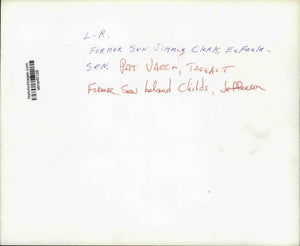 L-R.
FORMER SEN Jimmy Clark, Eufaula
SEN. PAT VACCA, TARRANT
FORMER Sen Leland Childs, Jefferson